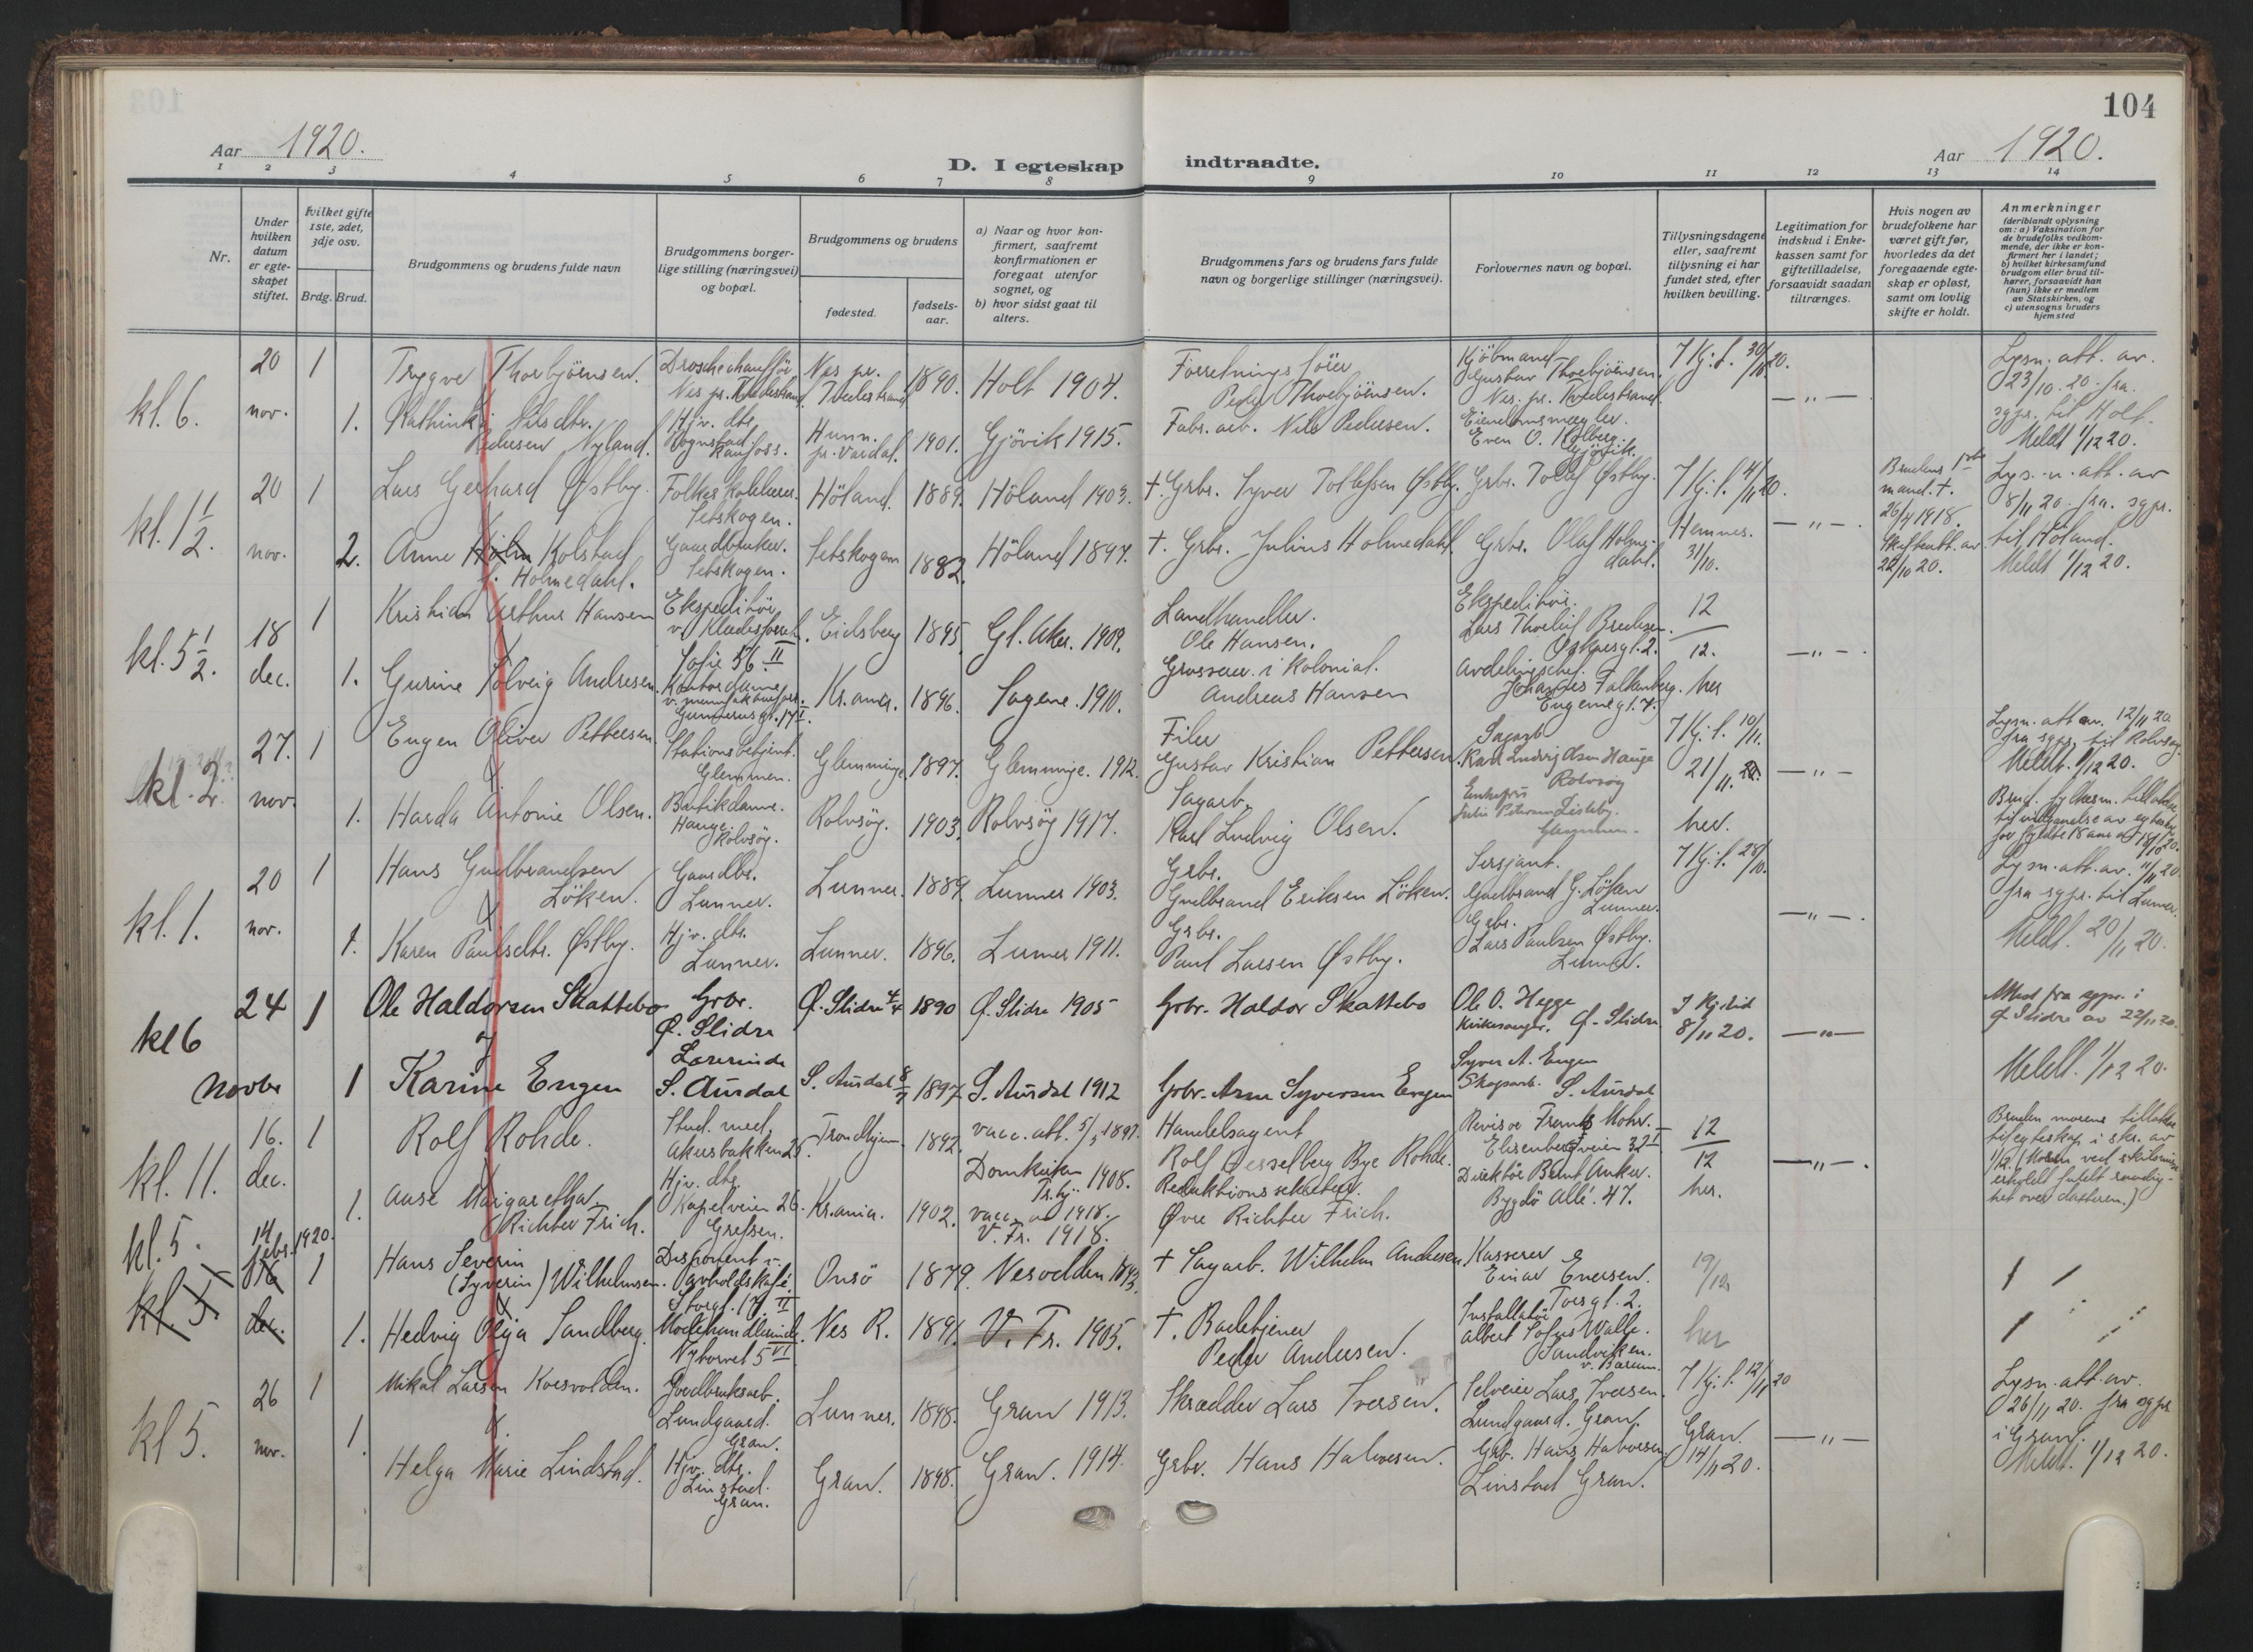 104
Aar 1920.
D. I egteskap indtraadte.
Aar 1920.
1 2 3 4 5 6 7 8 9 10 11 12 13 14
Nr.
Under hvilken datum er egteskapet stiftet.
Hvilket gifte 1ste, 2det, 3dje osv.
Brdg. Brud.
Brudgommens og brudens fulde navn
Brudgommens borgerlige stilling (næringsvei) og bopæl.
Brudgommens og brudens
fødested.
fødselsaar.
a) Naar og hvor konfirmert, saafremt konfirmationen er foregaat utenfor sognet, og
b) hvor sidst gaat til alters.
Brudgommens fars og brudens fars fulde navn og borgerlige stillinger (næringsvei).
Forlovernes navn og bopæl.
Tillysningsdagene eller, saafremt tillysning ei har fundet sted, efter hvilken bevilling.
Legitimation for indskud i Enkekassen samt for giftetilladelse, forsaavidt saadan tiltrænges.
Hvis nogen av brudefolkene har været gift før, hvorledes da det foregaaende egteskap er opløst, samt om lovlig skifte er holdt.
Anmerkninger
(deriblandt oplysning om: a) Vaksination for de brudefolks vedkommende, der ikke er konfirmert her i landet; b) hvilket kirkesamfund brudgom eller brud tilhører, forsaavidt han (hun) ikke er medlem av Statskirken, og c) utensogns bruders hjemsted
kl. 6. 20 nov. 1
Trygve Thorbjörnsen. Droschechaufför Nes pr. Tvedestrand Nes pr. Tvedestrand 1890. Holt 1904.
Forretningsfører Peder Thorbjörnsen. Kjöbmand Gustav Thorbjörnsen. Nes pr. Tvedestrand. 7 Kj. l. 30/10 20. — " —
Lysn. att. av. 23/10. 20. fra. sgpr. til Holt. Meldt 1/12 20.
1. Kathinka Nilsdtr. Pedersen Nyland. Hjv. dtr. Raufoss. Hunn. pr. Vardal. 1901. Gjövik 1915.
Fabr. arb. Nils Pedersen. Eiendomsmægler. Even O. Kolberg. Gjövik.
kl. 1 1/2. 20 nov. 1
Lars Gerhard Østby. Folkeskolelærer. Setskogen. Höland. 1889. Höland 1903.
†. Grbr. Syver Tollefsen Østby. Grbr. Tollef Østby. 7 Kj. l. 4/11 20. — " —.
Brudens 1ste mand. †. 26/4 1918. Skifteatt. av 22/10 20.
Lysn. att. av 8/11 20. fra. sgpr. til Höland. Meldt 1/12 20.
2. Anne Kolstad f. Holmedahl. Gaardbruker. Setskogen. Setskogen 1882. Höland 1897.
†. Grbr. Julius Holmedahl. Grbr. Olaf Holmedahl. Hemnes. 31/10.
kl. 5 1/2. 18 dec. 1
Kristian Arthur Hansen Ekspeditör Sofie 56 II Eidsberg 1895. Gl. Aker. 1909.
Landhandler. Ole Hansen. Ekspeditör. 12/12. — " —.
1. Gurine Solveig Andresen. Kontordame Gunnerusgt. 17 I. Kr.ania. 1896. Sagene. 1910.
Grosserer i kolonial. Andreas Hansen Avdelingschef. Johannes Falkenberg. Eugeniegt. 7. her
kl. 2. 27. nov. 1
Eugen Oliver Pettersen. Stationsbetjent. Glemmen. Glemminge. 1897. Glemminge. 1912.
Filer Gustav Kristian Pettersen. Sagarb. Karl Ludvig Olsen Hauge Rolvsøy 7 Kj. l. 10/11. — " —
Lysn. att. av. 12/11 20 fra sgpr. til Rolvsøy. Meldt. 1/12 20.
1. Harda Antonie Olsen. Butikdame. Hauge Rolvsöy. Rolvsöy. 1903. Rolvsöy 1917.
Sagarb. Karl Ludvig Olsen. Enkefru 21/11. 20. her.
kl. 1. 20 nov. 1
Hans Gudbrandsen Löken. Gaardbr. Lunner. Lunner. 1889. Lunner 1903.
Grbr. Gudbrand Eriksen Löken. Sersjant. Gudbrand G. Löken Lunner. 7 Kj. l. 28/10. — " —.
Lysn. att. av. 11/11 20 fra sgpr. til Lunner. Meldt. 20/11 20.
1. Karen Paulsdtr. Østby. Hjv. dtr. Lunner. Lunner. 1896. Lunner 1911.
Grbr. Paul Larsen Østby. Grbr. Lars Paulsen Østby. Lunner.
kl 6 24 Novbr 1
Ole Haldorsen Skattebo Grbr. Ø. Slidre Ø. Slidre 4/4 1890 Ø. Slidre 1905
Grbr. Haldor Skattebo Ole O. Hegge Kirkesanger. Ø. Slidre 8/11 20. — " —
Attest fra sgpr. i Ø Slidre av 22/11 20. Meldt. 1/12 20.
1 Karine Engen Lærerinde S. Aurdal S. Aurdal 8/7 1897 S. Aurdal 1912
Grbr. Arne Syversen Engen Syver A. Engen Skogsarb. S. Aurdal
kl. 11. 16. dec. 1
Rolf Rohde. Stud. med. Akersbakken 25. Trondhjem. 1892. vacc. att. 5/5 1897. Domkirken Tr.hj. 1908.
Handelsagent Rolf Hesselberg Bye Rohde. Revisor Frantz Mohr. Elisenbergveien 32 I 12/12 — " —.
1. Aase Margaretha Richter Frich. Hjv. dtr. Kapelveien 26. Grefsen. Kr.ania. 1902. V. Fr. 1918.
Redaktionssekretær. Øvre Richter Frich. Direktör Bernt Anker. Bygdö Allé. 47. her.
kl. 5. 14 febr. 1920. 1
Hans Severin (Syverin) Wilhelmsen. Disponent Storgt. 17. II Onsö 1879. Nesodden 1893.
† Sagarb. Wilhelm Andersen Kasserer Einar Enersen. Torsgt. 2. 19/12
kl. 5 dec. 1. Hedvig Olga Sandberg. Modehandlerinde. Nytorvet 5 VI Ves R. 1891. V. Fr. 1905.
†. Badetjener Peder Andersen. Installatör Albert Sofus Walle. Sandviken. v. Bærum. her
kl 5. 26 nov. 1
Mikal Larsen Korsvolden. Jordbruksarb. Lundgaard. Gran. Lunner. 1898. Gran 1913.
Skrædder Lars Iversen. Selveier Lars Iversen. Lundgaard. Gran. 7 Kj. l. 12/11 20 — " —
Lysn. att. av. 26/11 20. fra sgpr i Gran. Meldt. 1/12 20.
1. Helga Marie Lindstad. Hjv. dtr. Linstad. Gran. Gran. 1898. Gran. 1914.
Grbr. Hans Halvorsen. Grb. Hans Halvorsen Linstad Gran. Gran. 14/11 20.